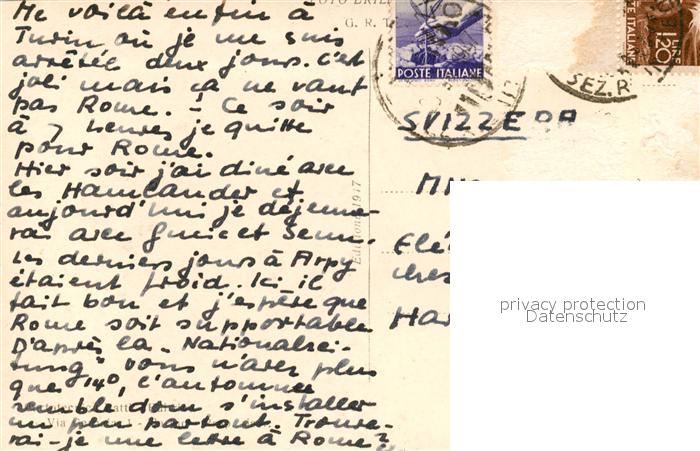 Me voilà enfin à
Turin où je me suis
arrêtée deux jours. C'est
joli mais ça ne vaut
pas Rome. – Ce soir
à 7 heures je quitte
pour Rome.
Hier soir j'ai diné avec
les Hamlander et
aujourd'hui je déjeune-
rai avec et
Les derniers jours à Arpy
étaient froid. Ici il
fait bon et j'espère que
Rome soit supportable
D'après la "Nationalzei-
tung" vous n'avez plus
que 14°, l'automne
semble donc s'installer
un peu partout. Trouve-
rai-je une lettre à Rome?
G. R. T
POSTE ITALIANE
LIRE
1,20
POSTE ITALIANE
SEZ. R
SVIZZERA
Edizione 1947
Via
privacy protection
Datenschutz